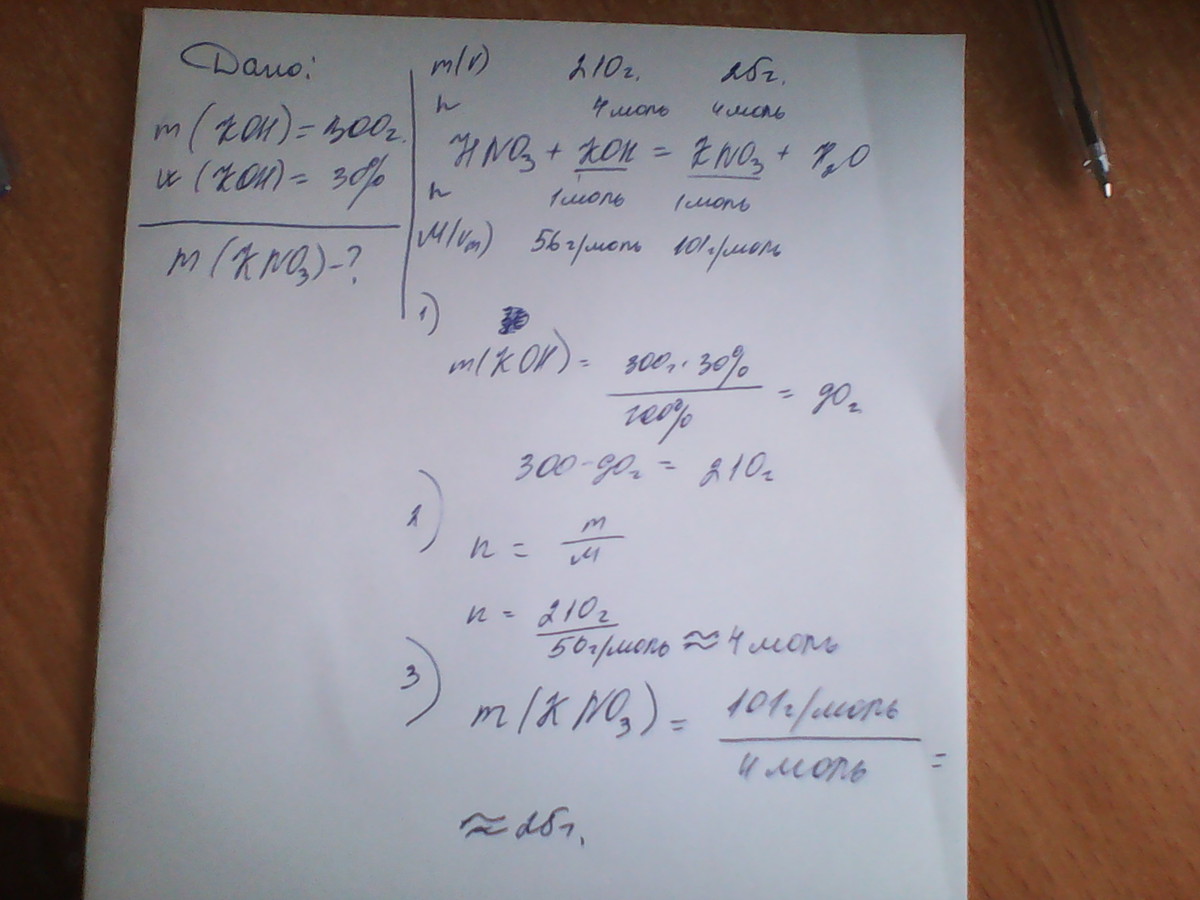 Дано:
m(KOH) = 300г.
w(KOH) = 30%
m(KNO₃) - ?
m(v) 210г. 25г.
n 4моль 4моль
HNO₃ + KOH = KNO₃ + H₂O
n 1моль 1моль
M(Vm) 56г/моль 101г/моль
1)
m(KOH) = 300г · 30% / 100% = 90г
300 - 90г = 210г
2)
n = m / M
n = 210г / 56г/моль ≈ 4моль
3)
m(KNO₃) = 101г/моль / 4моль =
≈ 25г.